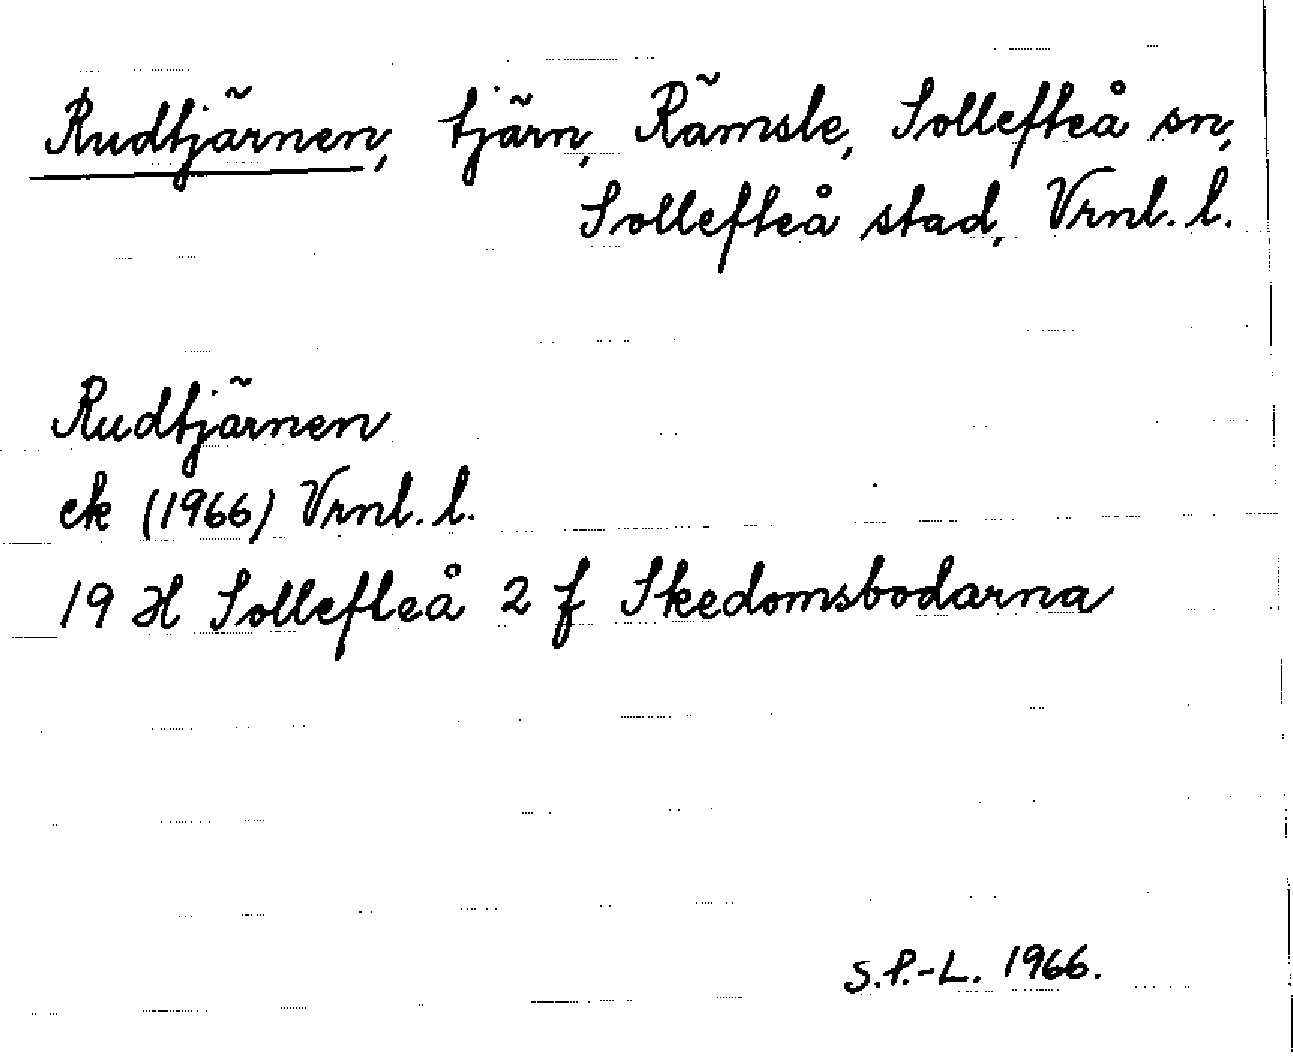 Rudtjärnen, tjärn, Rämsle, Sollefteå sn,
Sollefteå stad, Vrnl. l.
Rudtjärnen
ek (1966) Vrnl. l.
19 H Sollefteå 2 f Skedomsbodarna
S.P.-L. 1966.